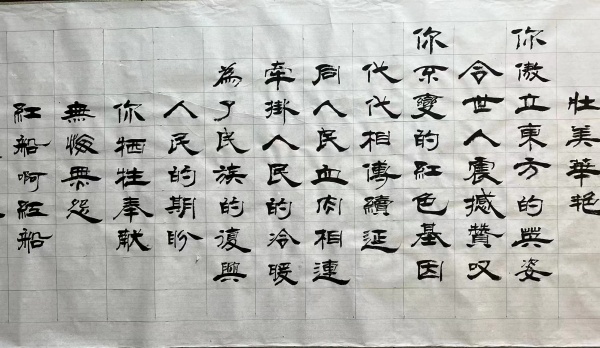 壮美華艳
你傲立東方的英姿
令世人震撼贊叹
你不變的紅色基因
代代相傳續延
同人民血肉相連
牽掛人民的冷暖
為了民族的復興
人民的期盼
你牺牲奉献
無悔無怨
紅船啊紅船